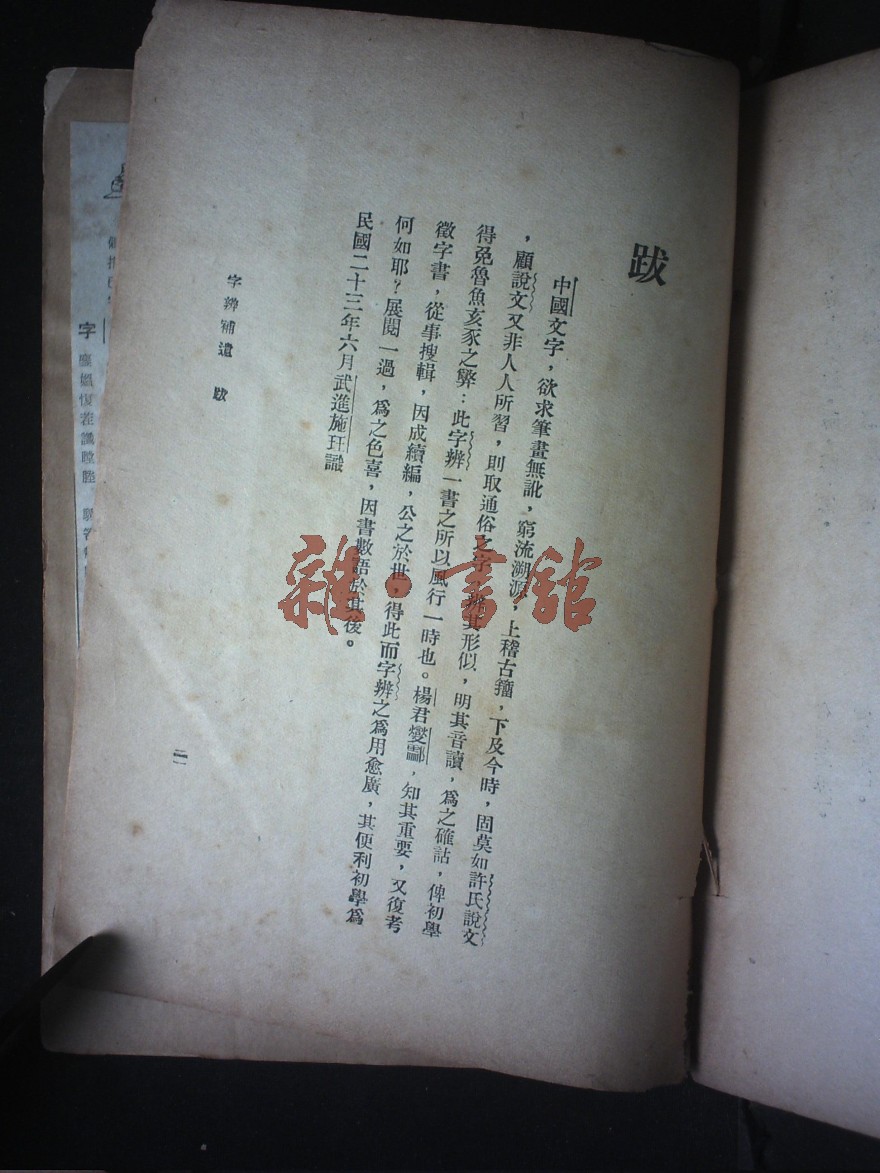 跋
中國文字，欲求筆畫無訛，窮流溯源，上稽古籀，下及今時，固莫如許氏說文
，顧說文又非人人所習，則取通俗之字，辨其形似，明其音讀，爲之確詁，俾初學
得免魯魚亥豕之弊：此字辨一書之所以風行一時也。楊君燮霝，知其重要，又復考
徵字書，從事搜輯，因成續編，公之於世，得此而字辨之爲用愈廣，其便利初學爲
何如耶？展閱一過，爲之色喜，因書數語於其後。
民國二十三年六月武進施玨識
字辨補遺 跋
二
雜·書館
字